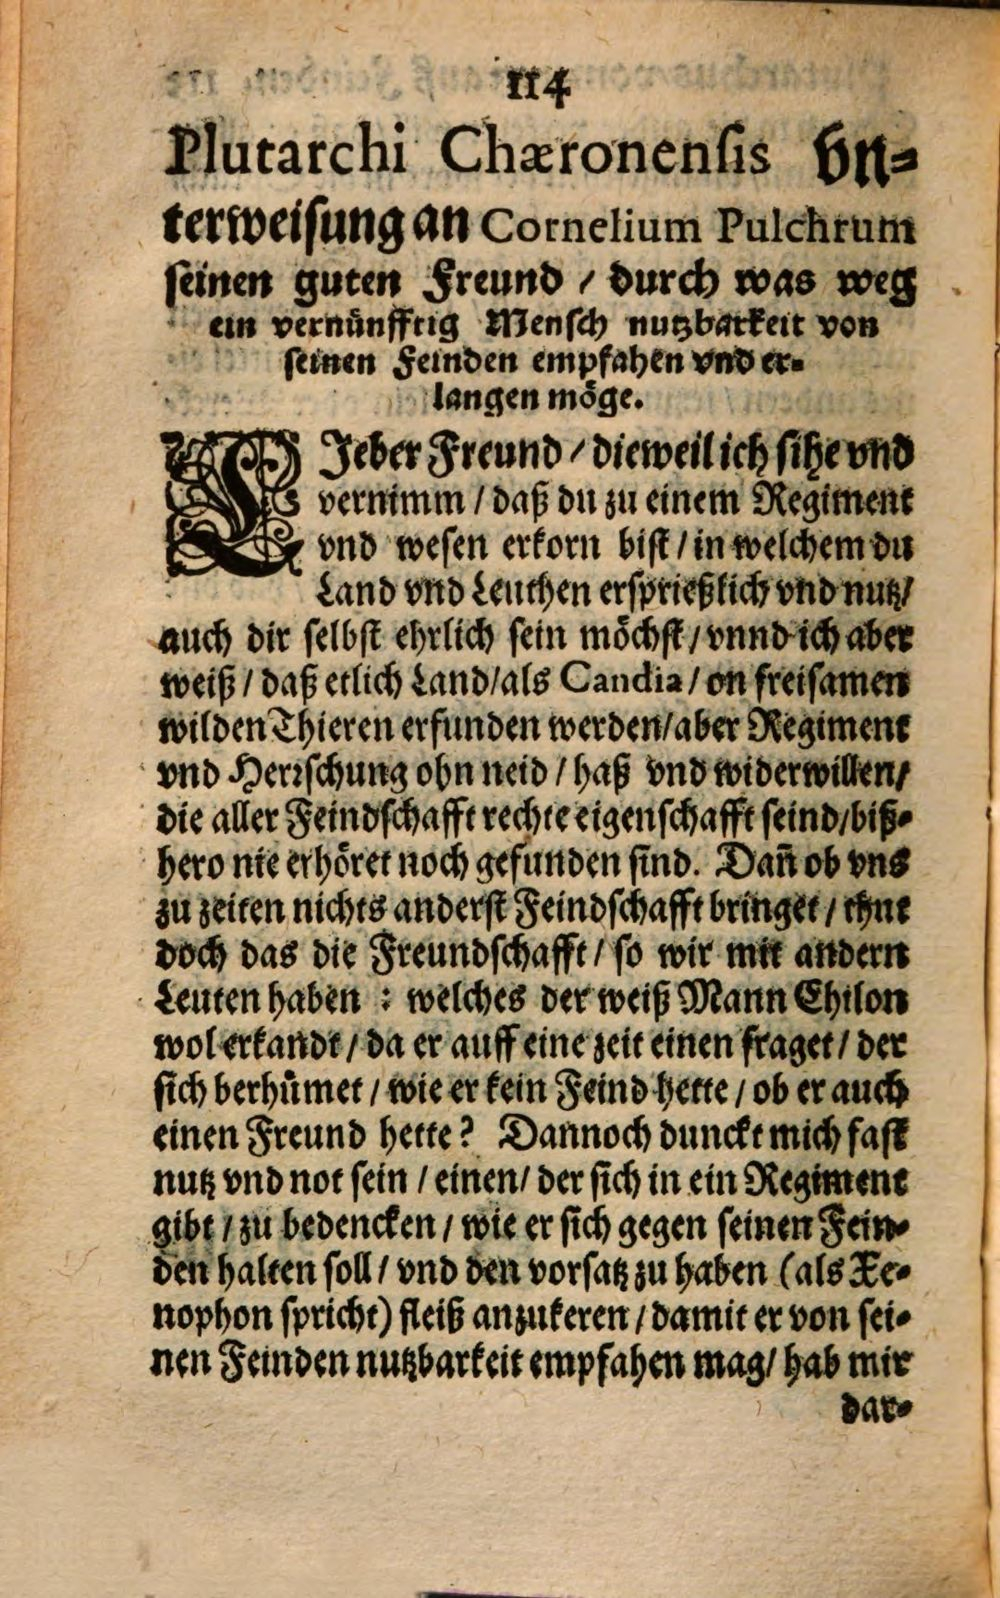 114
Plutarchi Chæronensis Vn⸗
terweisung an Cornelium Pulchrum
seinen guten Freund / durch was weg
ein vernünfftig Mensch nutzbarkeit von
seinen Feinden empfahen vnd er⸗
langen möge.
LJeber Freund / dieweil ich sihe vnd
vernimm / daß du zu einem Regiment
vnd wesen erkorn bist / in welchem du
Land vnd Leuthen ersprießlich vnd nutz /
auch dir selbst ehrlich sein möchst / vnnd ich aber
weiß / daß etlich Land / als Candia / on freisamen
wilden Thieren erfunden werden / aber Regiment
vnd Herrschung ohn neid / haß vnd widerwillen /
die aller Feindschafft rechte eigenschafft seind / biß⸗
hero nie erhöret noch gefunden sind. Dañ ob vns
zu zeiten nichts anderst Feindschafft bringet / thut
doch das die Freundschafft / so wir mit andern
Leuten haben : welches der weiß Mann Chilon
wol erkandt / da er auff eine zeit einen fraget / der
sich berhůmet / wie er kein Feind hette / ob er auch
einen Freund hette? Dannoch dunckt mich fast
nutz vnd not sein / einen / der sich in ein Regiment
gibt / zu bedencken / wie er sich gegen seinen Fein⸗
den halten soll / vnd den vorsatz zu haben (als Xe⸗
nophon spricht) fleiß anzukeren / damit er von sei⸗
nen Feinden nutzbarkeit empfahen mag / hab mir
dar⸗